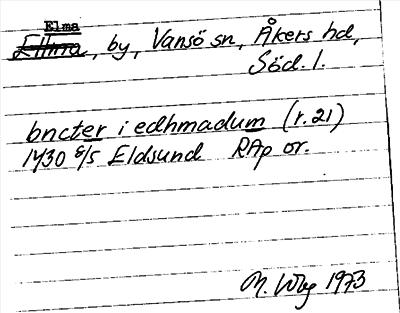 Elma
Ellma, by, Vansö sn, Åkers hd,
Söd. l.
bncter i edhmadum (r. 21)
1430 8/5 Eldsund RAp or.
1973